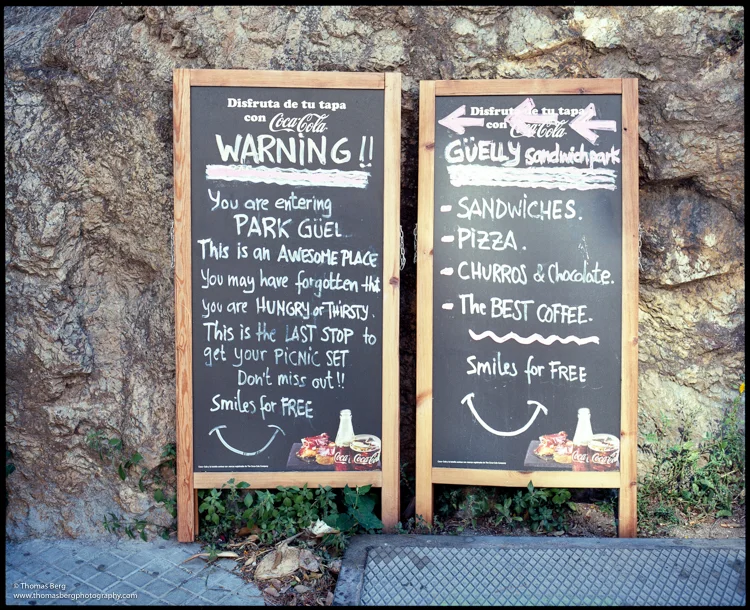 Disfruta de tu tapa
con Coca-Cola
WARNING!!
You are entering
PARK GÜEL
This is an AWESOME PLACE
You may have forgotten tht
you are HUNGRY or THIRSTY.
This is the LAST STOP to
get your PICNIC SET
Don't miss out!!
Smiles for FREE
Coca-Cola
Disfruta de tu tapa
con Coca-Cola
GÜELLY sandwichpark
- SANDWICHES.
- PIZZA.
- CHURROS & Chocolate.
- The BEST COFFEE.
Smiles for FREE
Coca-Cola
© Thomas Berg
www.thomasbergphotography.com